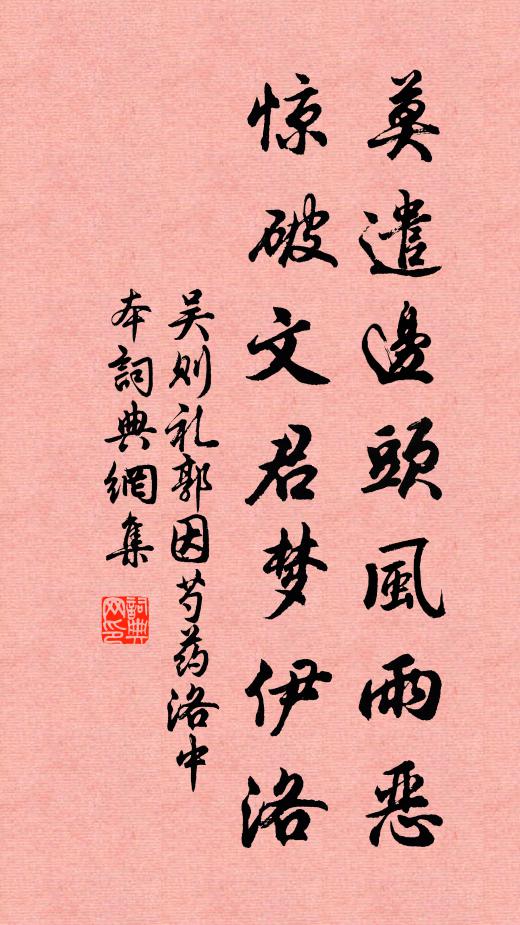 莫遣邊頭風雨惡
惊破文君梦伊洛
吴则礼郭因芍药洛中
本詞典網集
詞典网印